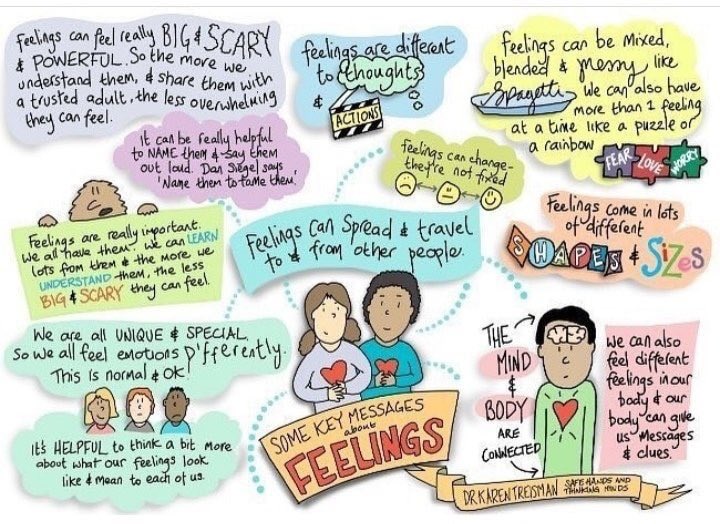 Feelings can feel really BIG & SCARY
& POWERFUL. So the more we
understand them, & share them with
a trusted adult, the less overwhelming
they can feel.
feelings are different
to thoughts
&
ACTIONS
Feelings can be Mixed,
blended & messy like
Spagetti
We can also have
more than 1 feeling
at a time like a puzzle or
a rainbow
FEAR LOVE WORRY
It can be really helpful
to NAME them & say them
out loud. Dan Siegel says
'Name them to tame them'.
feelings can change-
they're not fixed
Feelings are really important.
We all have them. We can LEARN
lots from them & the more we
UNDERSTAND them, the less
BIG & SCARY they can feel.
Feelings can Spread & travel
to & from other people.
Feelings come in lots
of different
SHAPES & SIZes
We are all UNIQUE & SPECIAL.
So we all feel emotions Differently.
This is normal & OK.
It's HELPFUL to think a bit more
about what our feelings look
like & mean to each of us.
SOME KEY MESSAGES
about
FEELINGS
THE
MIND
&
BODY
ARE
CONNECTED
We can also
feel different
feelings in our
body & our
body can give
us messages
& clues.
DR KAREN TREISMAN SAFE HANDS AND
THINKING MINDS